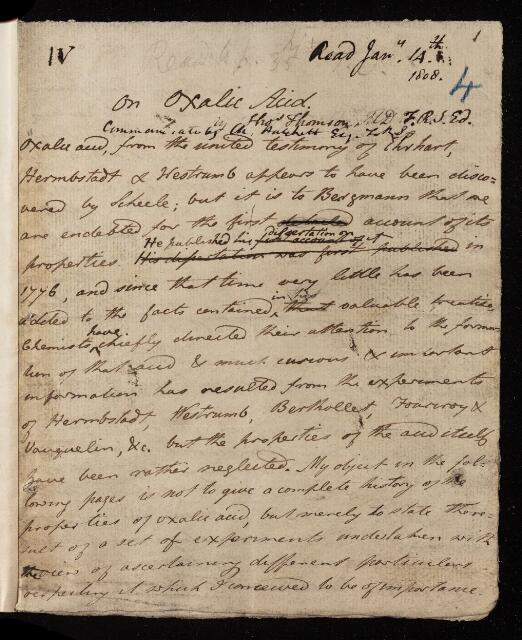 1
IV
Read Jany. 14th.
1808.
4
On Oxalic Acid.
By Thos. Thomson M.D. F.R.S. Ed.
Communicated by Ch. Hatchett Esq. F.R.S.
Oxalic acid, from the united testimony of Ehrhart,
Hermbstadt & Westrumb appears to have been disco-
vered by Scheele; but it is to Bergmann that we
are endebted for the first account of its
He published his dissertation on it
properties. His dissertation was first published in
1776, and since that time very little has been
added to the facts contained in his that valuable treatise.
Chemists have chiefly directed their attention to the forma-
tion of that acid & much curious & important
information has resulted from the experiments
of Hermbstadt, Westrumb, Berthollet, Fourcroy &
Vauquelin, &c. but the properties of the acid itself
have been rather neglected. My object in the fol-
lowing pages is not to give a complete history of the
properties of oxalic acid, but merely to state the re-
sult of a set of experiments undertaken with
the view of ascertaining different particulars
respecting it which I conceived to be of importance.